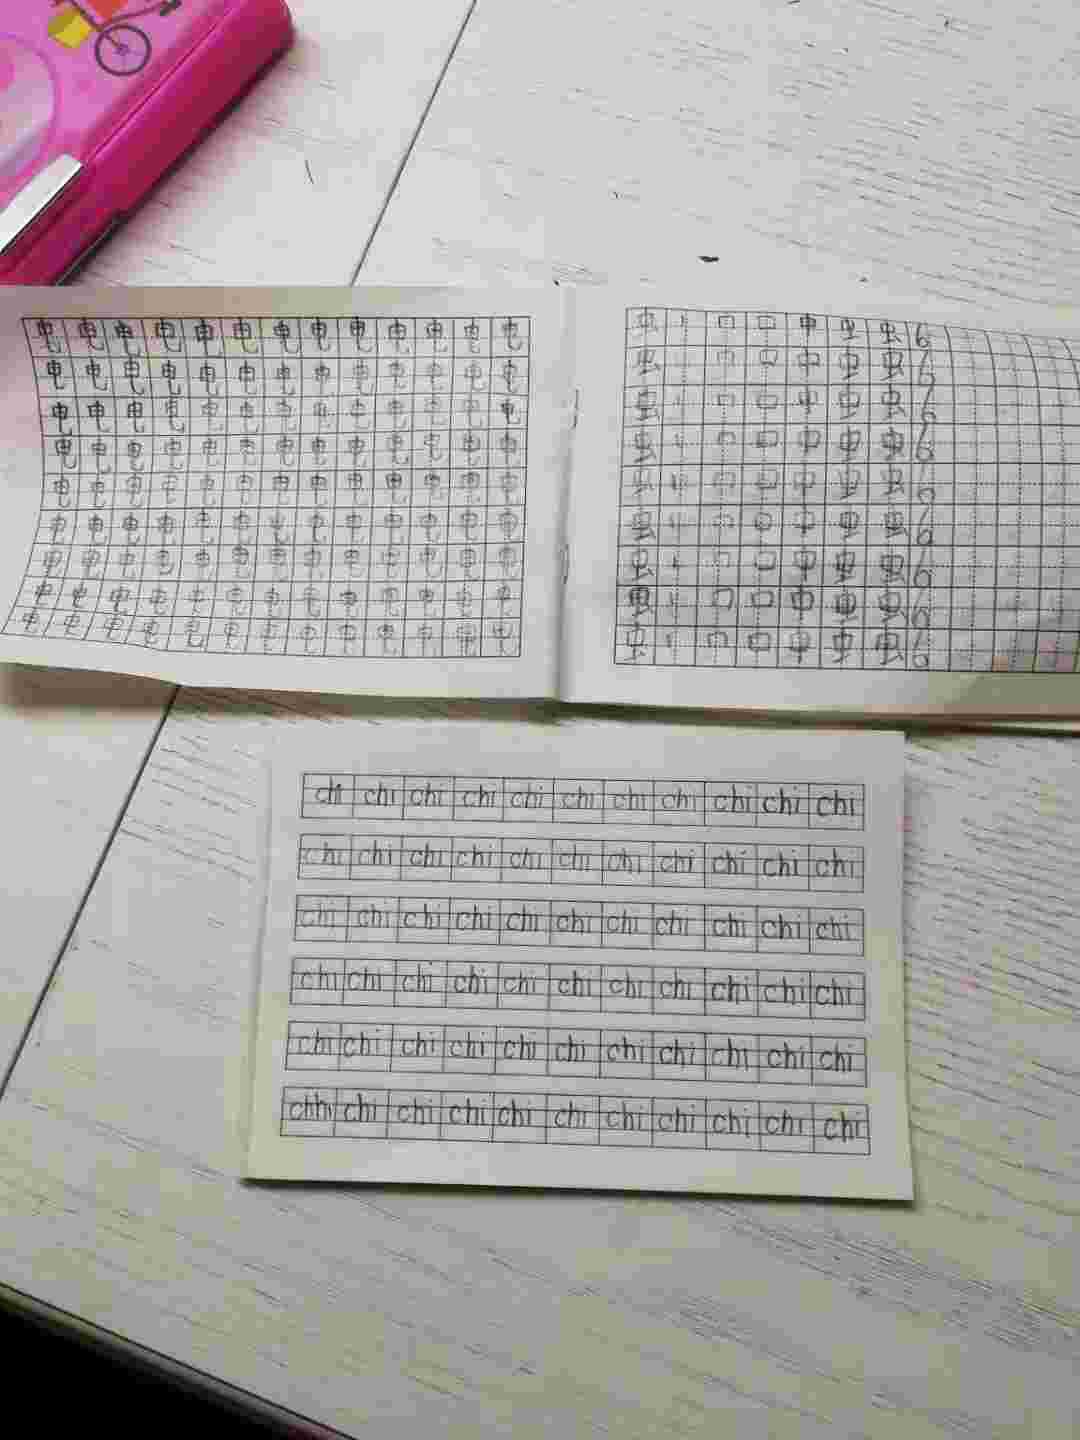 电 电 电 电 电 电 电 电 电 电 电 电 电
电 电 电 电 电 电 电 电 电 电 电 电 电
电 电 电 电 电 电 电 电 电 电 电 电 电
电 电 电 电 电 电 电 电 电 电 电 电 电
电 电 电 电 电 电 电 电 电 电 电 电 电
电 电 电 电 电 电 电 电 电 电 电 电 电
电 电 电 电 电 电 电 电 电 电 电 电 电
电 电 电 电 电 电 电 电 电 电 电 电 电
电 电 电 电 电 电 电 电 电 电 电 电 电
虫 丨 冂 口 中 虫 虫 6
虫 丨 冂 口 中 虫 虫 6
虫 丨 冂 口 中 虫 虫 6
虫 丨 冂 口 中 虫 虫 6
虫 丨 冂 口 中 虫 虫 6
虫 丨 冂 口 中 虫 虫 6
虫 丨 冂 口 中 虫 虫 6
虫 丨 冂 口 中 虫 虫 6
虫 丨 冂 口 中 虫 虫 6
chi chi chi chi chi chi chi chi chi chi chi
chi chi chi chi chi chi chi chi chi chi chi
chi chi chi chi chi chi chi chi chi chi chi
chi chi chi chi chi chi chi chi chi chi chi
chi chi chi chi chi chi chi chi chi chi chi
chhi chi chi chi chi chi chi chi chi chi chi